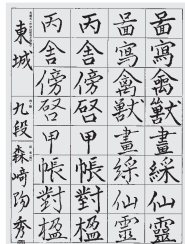 啚寫禽獸畫綵仙靈
啚寫禽獸畫綵仙靈
丙舍傍啓甲帳對楹
丙舍傍啓甲帳對楹
東城 九段 森﨑陶秀